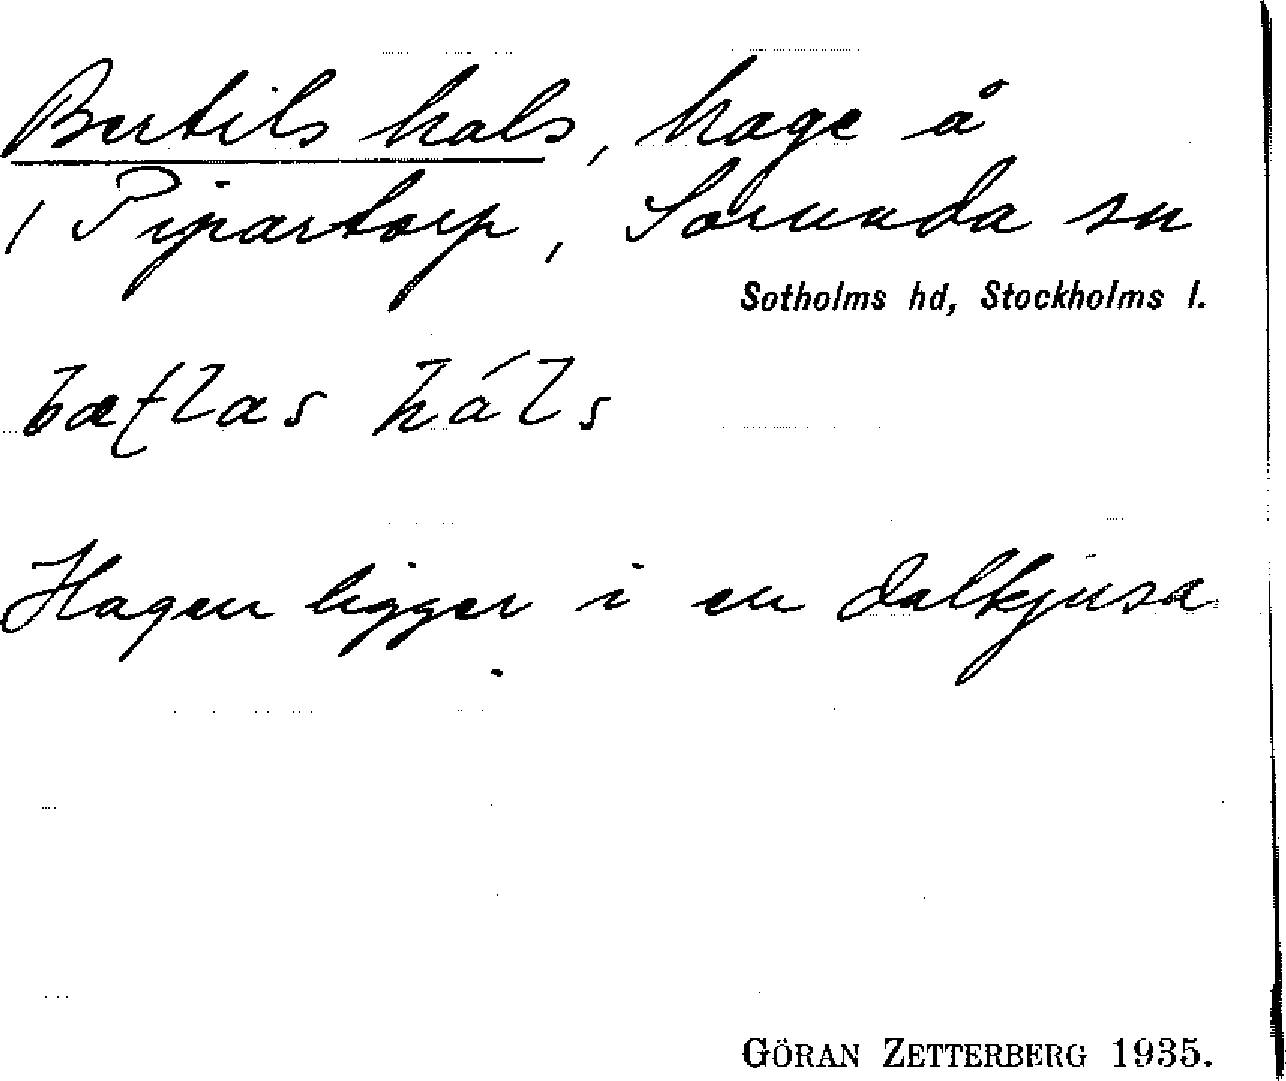 Bertils hals, hage å
/ Pipartorp, Sorunda sn
Sotholms hd, Stockholms l.
bætlas háls
Hagen ligger i en dalkjusa
GÖRAN ZETTERBERG 1935.